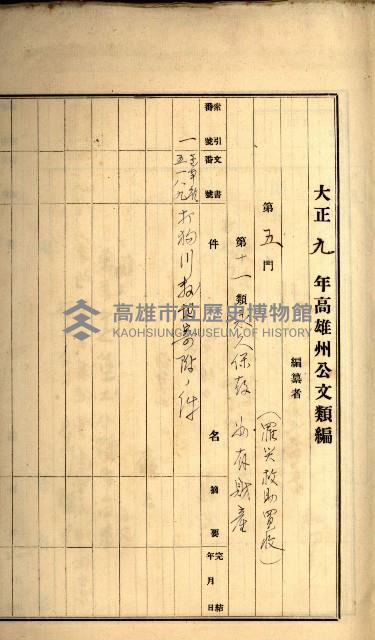 大正九年高雄州公文類編
編纂者
第五門
(罹災救助買収)
第十一類
財產
索引番號
文書番號
件名
摘要
完結年月日
一
五一八九
川敷地寄附ノ件
高雄市立歷史博物館
KAOHSIUNG MUSEUM OF HISTORY